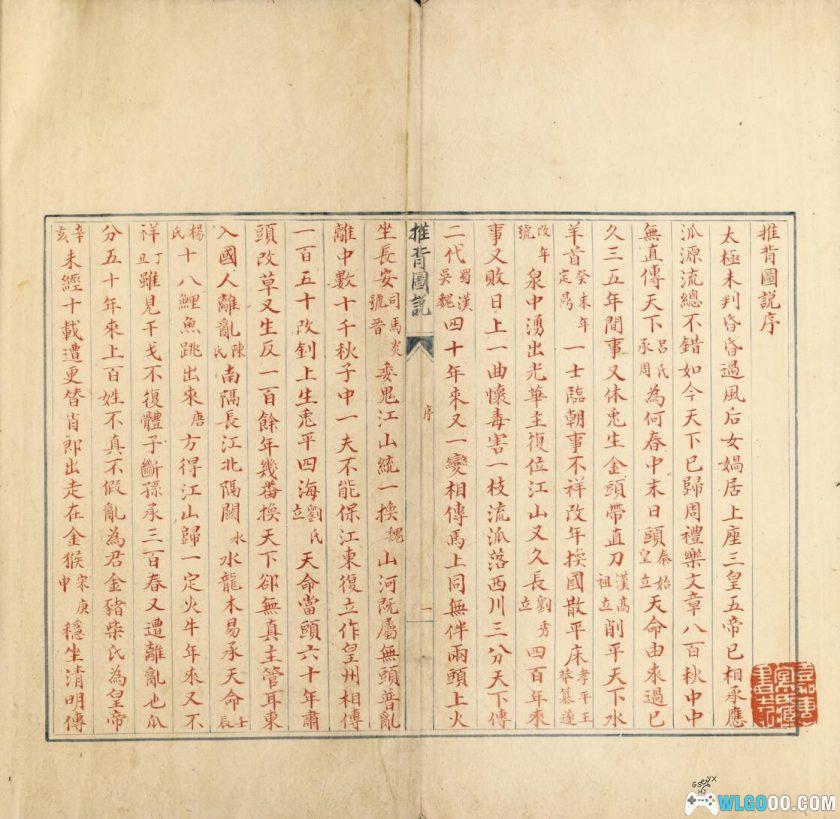 推背圖說序
太極未判昏昏過風后女媧居上座三皇五帝已相承應
泒源流總不錯如今天下已歸周禮樂文章八百秋中中
無直傳天下呂氏承周為何春中末日頭秦始皇立天命由來過已
久三五年間事又休兎生金頭帶直刀漢高祖立削平天下水
羊首癸未年定一士臨朝事不祥改年換國散平床孝平王莽纂逆
改年號泉中湧出光華主復位江山又久長劉秀立四百年來
事又敗日上一曲懷毒害一枝流泒落西川三分天下傳
二代蜀漢吳魏四十年來又一變相傳馬上同無伴兩頭上火
推背圖說 序 一
坐長安司馬炎號晉委鬼江山統一換魏山河阮屬無頭普亂
離中數十千秋子中一夫不能保江東復立作皇州相傳
一百五十改釗上生兎平四海劉氏立天命當頭六十年肅
頭改草又生反一百餘年幾番換天下卻無真主管耳東
入國人離亂陳氏南隅長江北隅關水水龍木易承天命壬辰
楊氏十八鯉魚跳出來唐方得江山歸一定火牛年來又不
祥丁丑雖見干戈不復體子斷孫承三百春又遭離亂也瓜
分五十年來上百姓不真不假亂為君金豬柴氏為皇帝
辛亥未經十載遭更替肖郎出走在金猴宋庚申穩坐清明傳
WLGOOO.COM